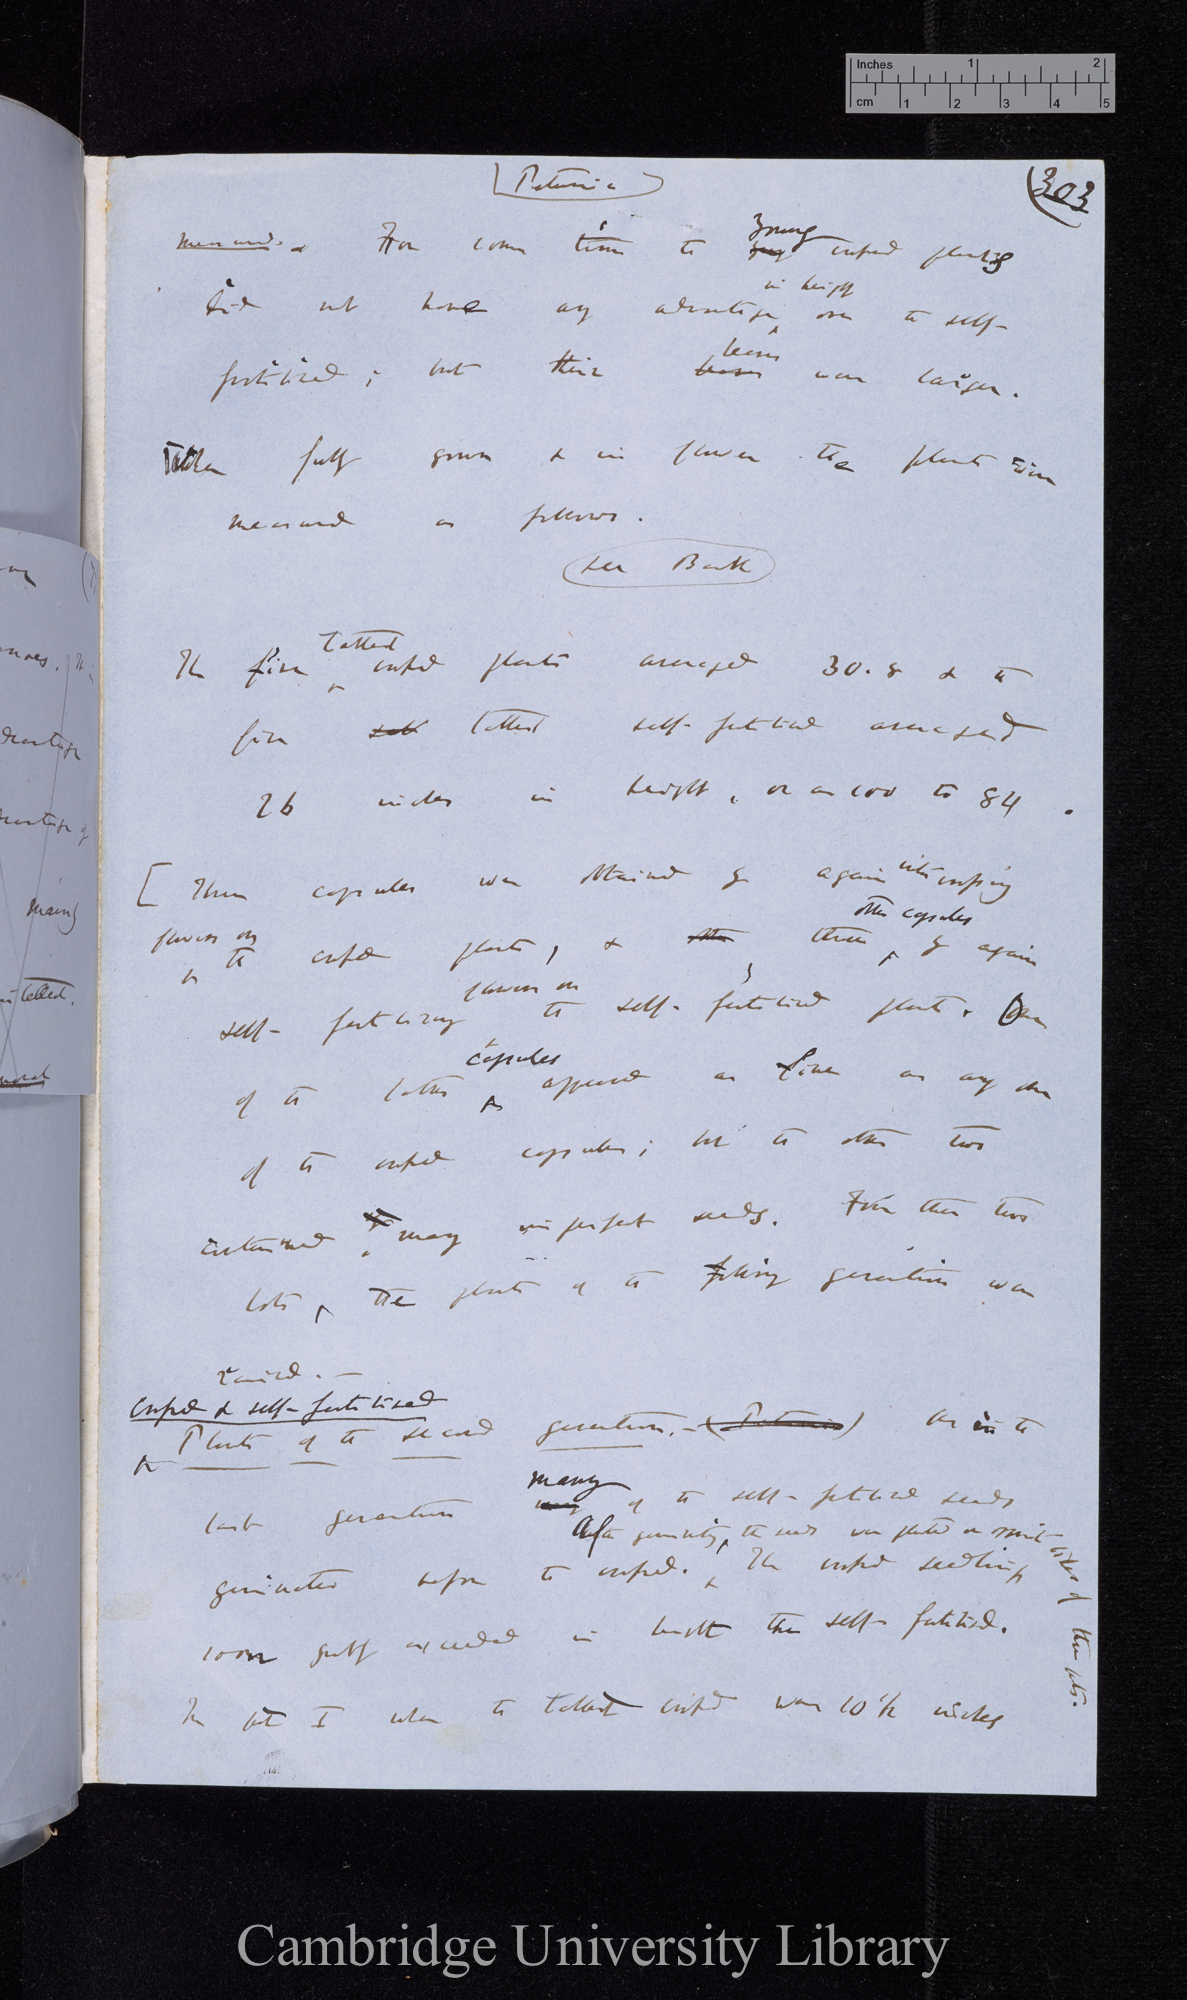 (Petunia)
(303
measured. & For some time the young crossed plants
did not have any advantage in height over the self-
fertilised; but their leaves leaves were larger.
When fully grown & in flower the plants were
measured as follows.
see Back
The five tallest crossed plants averaged 30.8 & the
five self tallest self-fertilised averaged
26 inches in height, or as 100 to 84.
[Three capsules were obtained by again intercrossing
flowers on the crossed plants, & three other capsules by again
self-fertilising flowers on the self-fertilised plants. One
of the latter capsules appeared as fine as any one
of the crossed capsules; but the other two
contained many imperfect seeds. From these two
lots, the plants of the following generation were
raised.—
Crossed & self-fertilised
Plants of the second generation.— (Petunia) As in the
last generation many of the self-fertilised seeds
germinated before the crossed. After germinating, the seeds were planted on opposite sides of three pots. The crossed seedlings
soon greatly exceeded in height the self-fertilised.
In pot I when the tallest crossed was 10½ inches
Inches 1 2
cm 1 2 3 4 5
Cambridge University Library